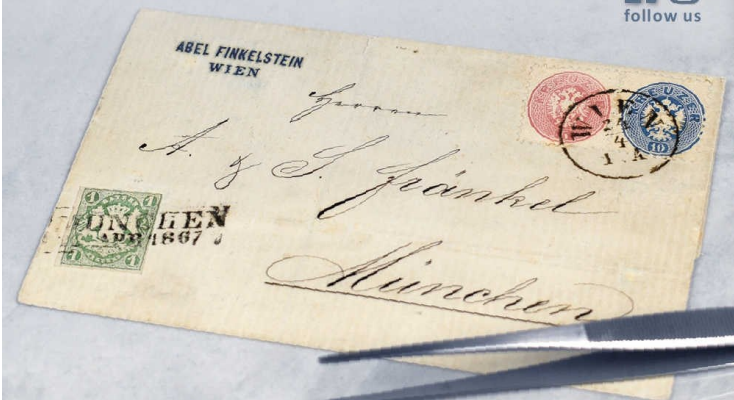 follow us
ABEL FINKELSTEIN
WIEN
Herren
A. & S. Fränkel
München
KREUZER
KREUZER
10
WIEN
24
4
1 1
ÜNCHEN
APR 1867
1 1